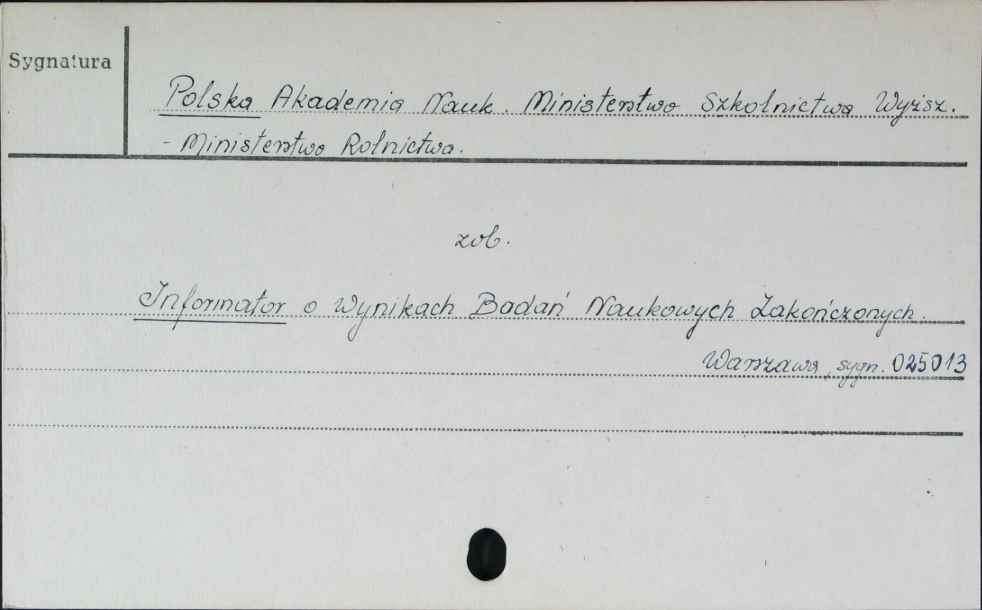 Sygnatura
Polska Akademia Nauk. Ministerstwo Szkolnictwa Wyższ.
- Ministerstwo Rolnictwa.
zob.
Informator o Wynikach Badań Naukowych Zakończonych.
Warszawa, sygn. 025013